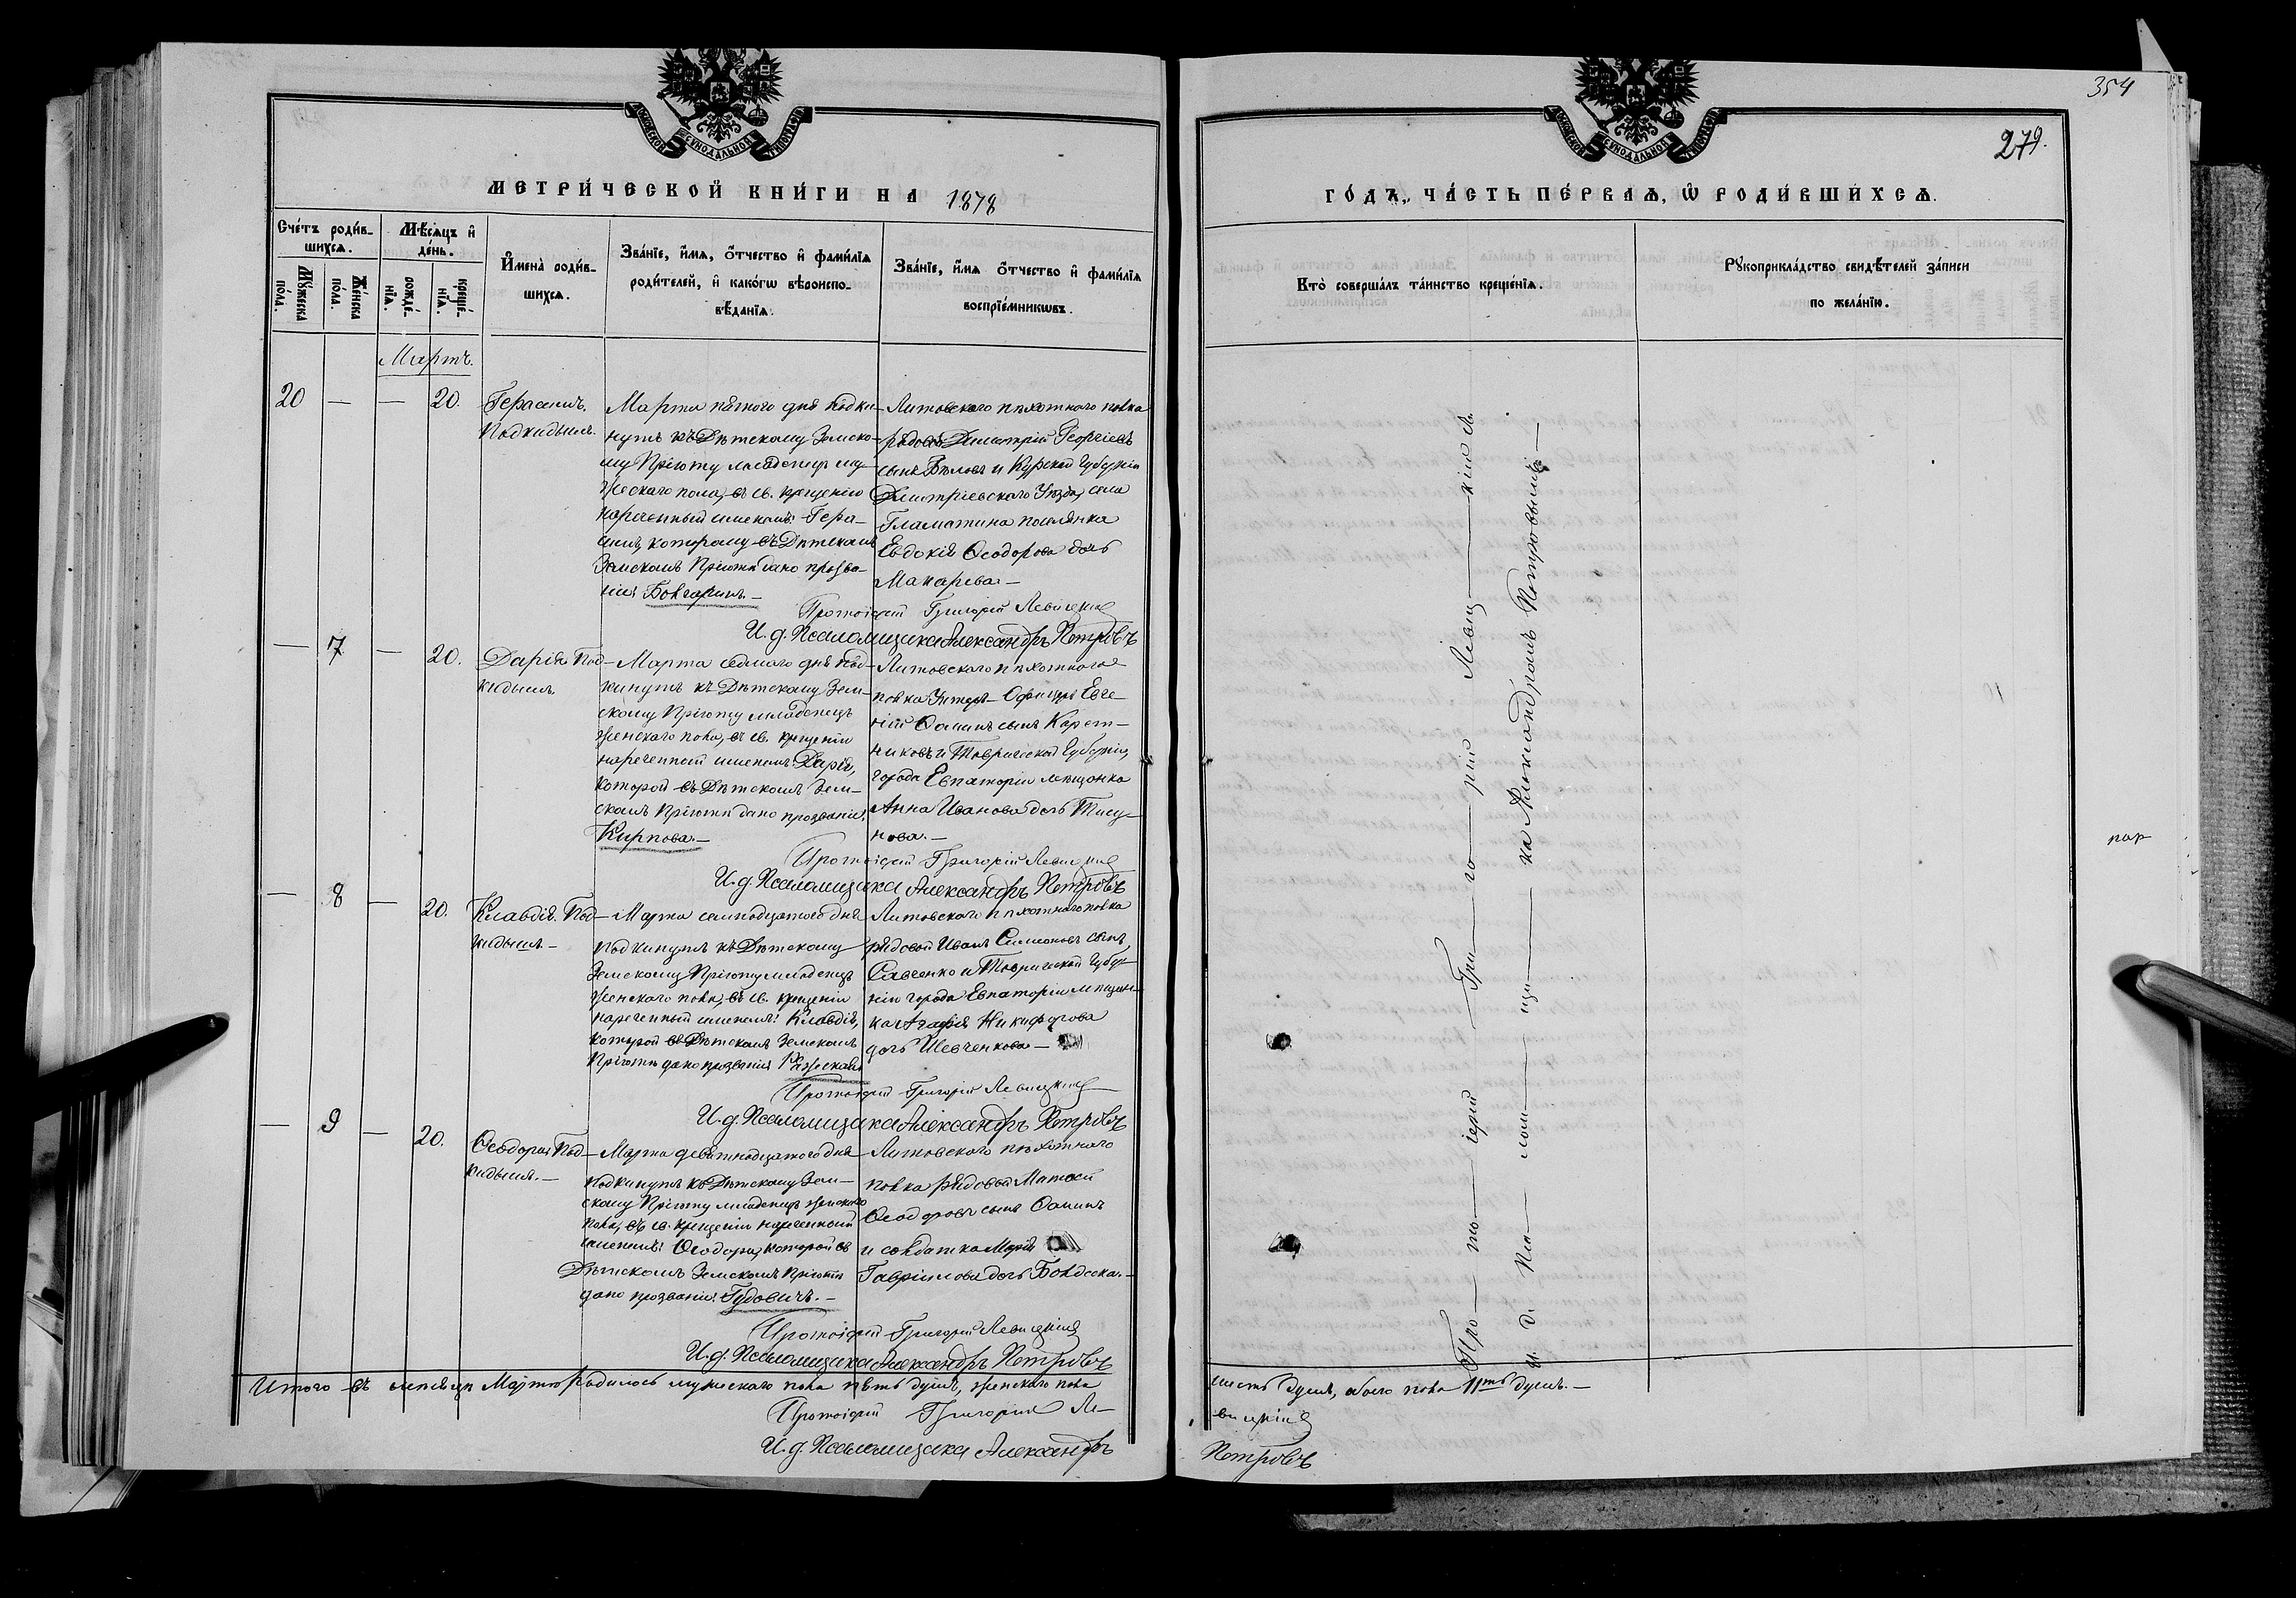 354
279.
МЕТРИ́ЧЕСКОЙ КНИ́ГИ НА 1878
ГО́ДЪ, ЧА́СТЬ ПЕ́РВАѦ, Ѡ҆ РОДИ́ВШИХСѦ.
Сче́тъ роди́в-
шихсѧ.
Мꙋ́жеска по́ла.
Же́нска по́ла.
Мѣ́сѧцъ и҆
де́нь.
рожде́нїѧ.
креще́нїѧ.
И҆мена̀ роди́в-
шихсѧ.
Зва́нїе, и҆́мѧ, ѻ҆́тчество и҆ фами́лїѧ
роди́телей, и҆ како́гѡ вѣроиспо-
вѣ́данїѧ.
Зва́нїе, и҆́мѧ ѻ҆́тчество и҆ фами́лїѧ
воспрїе́мникѡвъ.
Кто̀ соверша́лъ та́инство креще́нїѧ.
Рꙋкоприкла́дство свидѣ́телей за́писи
по жела́нїю.
Мартъ.
20 — — 20.
Герасимъ.
Подкидышъ.
Марта пятаго дня подки-
нутъ къ Дѣтскому Земско-
му Пріюту младенецъ му-
жескаго пола, въ св. крещеніи
нареченный именемъ: Гера-
симъ, которому въ Дѣтскомъ
Земскомъ Пріютѣ дано прозва-
ніе Болгаринъ. —
Литовскаго пѣхотнаго полка
рядовой Димитрій Георгіевъ
сынъ Бѣловъ и Курской Губерніи
Дмитріевскаго Уѣзда, села
Гламатина поселянка
Евдокія Ѳеодорова дочь
Макарева —
Протоіерей Григорій Левицкій
И. д. Псаломщика Александръ Петровъ
— 7 — 20.
Дарія Под-
кидышъ
Марта седмаго дня под-
кинутъ къ Дѣтскому Зем-
скому Пріюту младенецъ
женскаго пола, въ св. крещеніи
нареченный именемъ: Дарія,
которой въ Дѣтскомъ Зем-
скомъ Пріютѣ дано прозваніе,
Кирпова. —
Литовскаго пѣхотнаго
полка Унтеръ-Офицеръ Евге-
ній Ѳоминъ сынъ Карет-
никовъ и Таврической Губерніи,
города Евпаторіи мѣщанка
Анна Иванова дочь
нова. —
Протоіерей Григорій Левицкій
И. д. Псаломщика Александръ Петровъ
— 8 — 20.
Клавдія. Под-
кидышъ —
Марта семнадцатаго дня
подкинутъ къ Дѣтскому
Земскому Пріюту младенецъ
женскаго пола, въ св. крещеніи
нареченный именемъ: Клавдія,
которой въ Дѣтскомъ Земскомъ
Пріютѣ дано прозваніе
Литовскаго пѣхотнаго полка
рядовой Иванъ Симеоновъ сынъ
Савченко и Таврической Губер-
ніи города Евпаторіи мѣщан-
ка Агафія Никифорова
дочь Шевченкова —
Протоіерей Григорій Левицкій
И. д. Псаломщика Александръ Петровъ
— 9 — 20.
Ѳеодора Под-
кидышъ. —
Марта девятнадцатаго дня
подкинутъ къ Дѣтскому Зем-
скому Пріюту младенецъ женскаго
пола, въ св. крещеніи нареченный
именемъ: Ѳеодора, которой въ
Дѣтскомъ Земскомъ Пріютѣ
дано прозваніе: Гудовичъ. —
Литовскаго пѣхотнаго
полка рядовой Матѳей
Ѳеодоровъ сынъ Ѳоминъ
и солдатка Марія
Гавріилова дочь
Протоіерей Григорій Левицкій
И. д. Псаломщика Александръ Петровъ
Про— то— іерей —Гри— го— рій Левиц— кій съ
И. д. Пса— лом— щи— ка Александромъ Петровымъ —
Итого въ мѣсяцѣ Мартѣ родилось мужескаго пола пять душъ, женскаго пола
шесть душъ, обоего пола 11ть душъ. —
Протоіерей Григорій Ле-
вицкій
И. д. Псаломщика Александръ
Петровъ